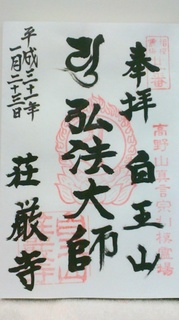 奉拝 白王山
高野山真言宗
霊場
弘法大師
荘厳寺
平成三十一年
一月二十三日